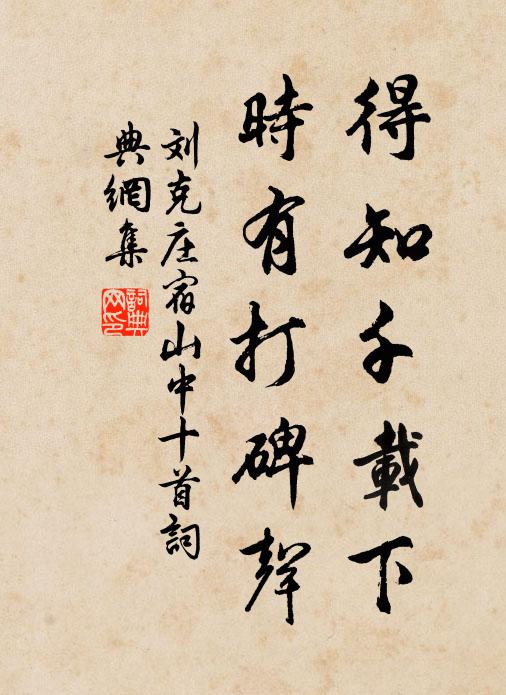 得知千載下
時有打碑聲
刘克庄宿山中十首詞
典網集
詞典网印